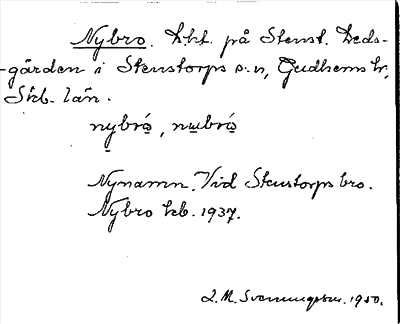 Nybro. Lht. på Stenst. Leds-
-gården i Stenstorps s:n, Gudhems hr,
Skb. län.
nybró, nubró
Nynamn. Vid Stenstorps bro.
Nybro kb. 1937.
L. M. Svenungsson. 1950.